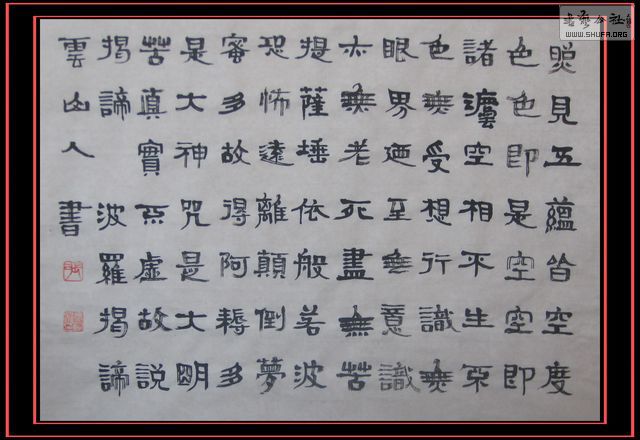 照見五蘊皆空度
色色即是空空即
諸灋空相不生不
色無受想行識無
眼界迺至無意識
亦無老死盡無苦
提薩埵依般若波
恐怖遠離顛倒夢
蜜多故得阿耨多
是大神咒是大明
苦真實不虛故説
揭諦 波羅揭諦
雲山人 書
书艺公社
WWW.SHUFA.ORG